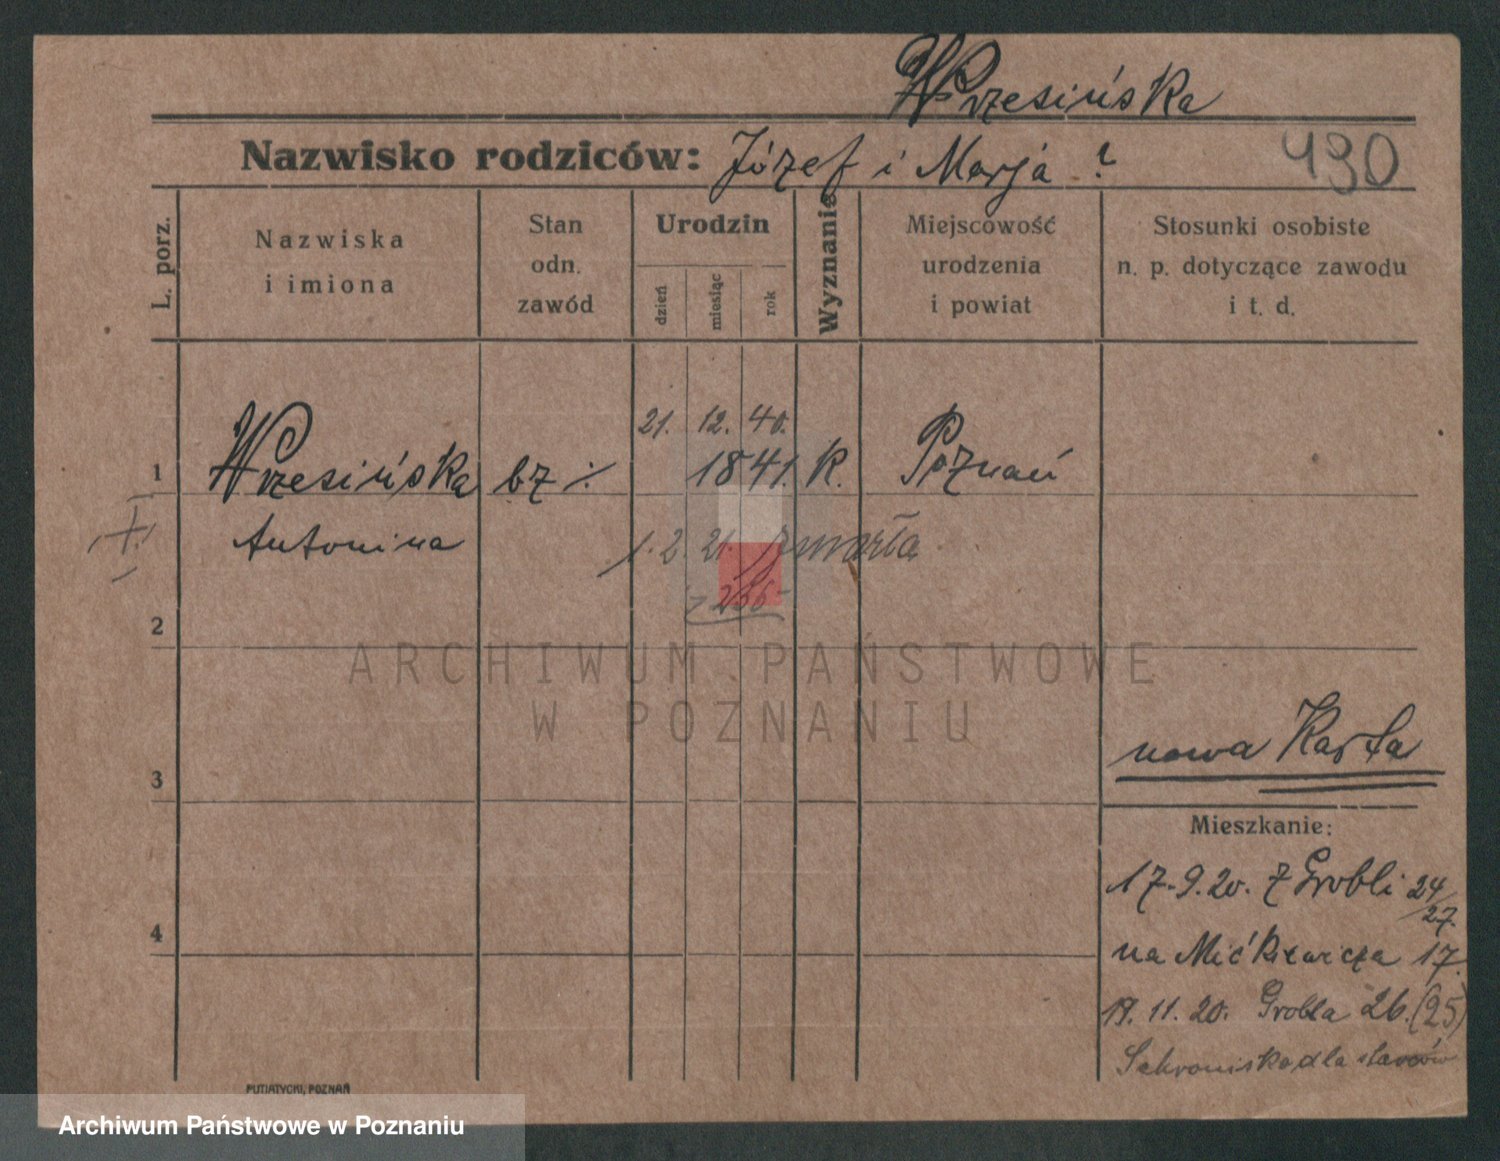 Wrzesińska
Nazwisko rodziców: Józef i Marja ?
490
L. porz.
Nazwiska
i imiona
Stan
odn.
zawód
Urodzin
dzień
miesiąc
rok
Wyznanie
Miejscowość
urodzenia
i powiat
Stosunki osobiste
n. p. dotyczące zawodu
i t. d.
21. 12. 40.
1 Wrzesińska bz ·/. 1841. K. Poznań
Antonina
1. 2. 21. zmarła
2
ARCHIWUM PAŃSTWOWE
W POZNANIU
nowa Karta
3
Mieszkanie:
17.9.20. z Grobli 24/27
4
na Mićkiewicza 17.
19. 11. 20. Grobla 26. (25)
Schroniska dla starców
PUTIATYCKI, POZNAŃ
Archiwum Państwowe w Poznaniu